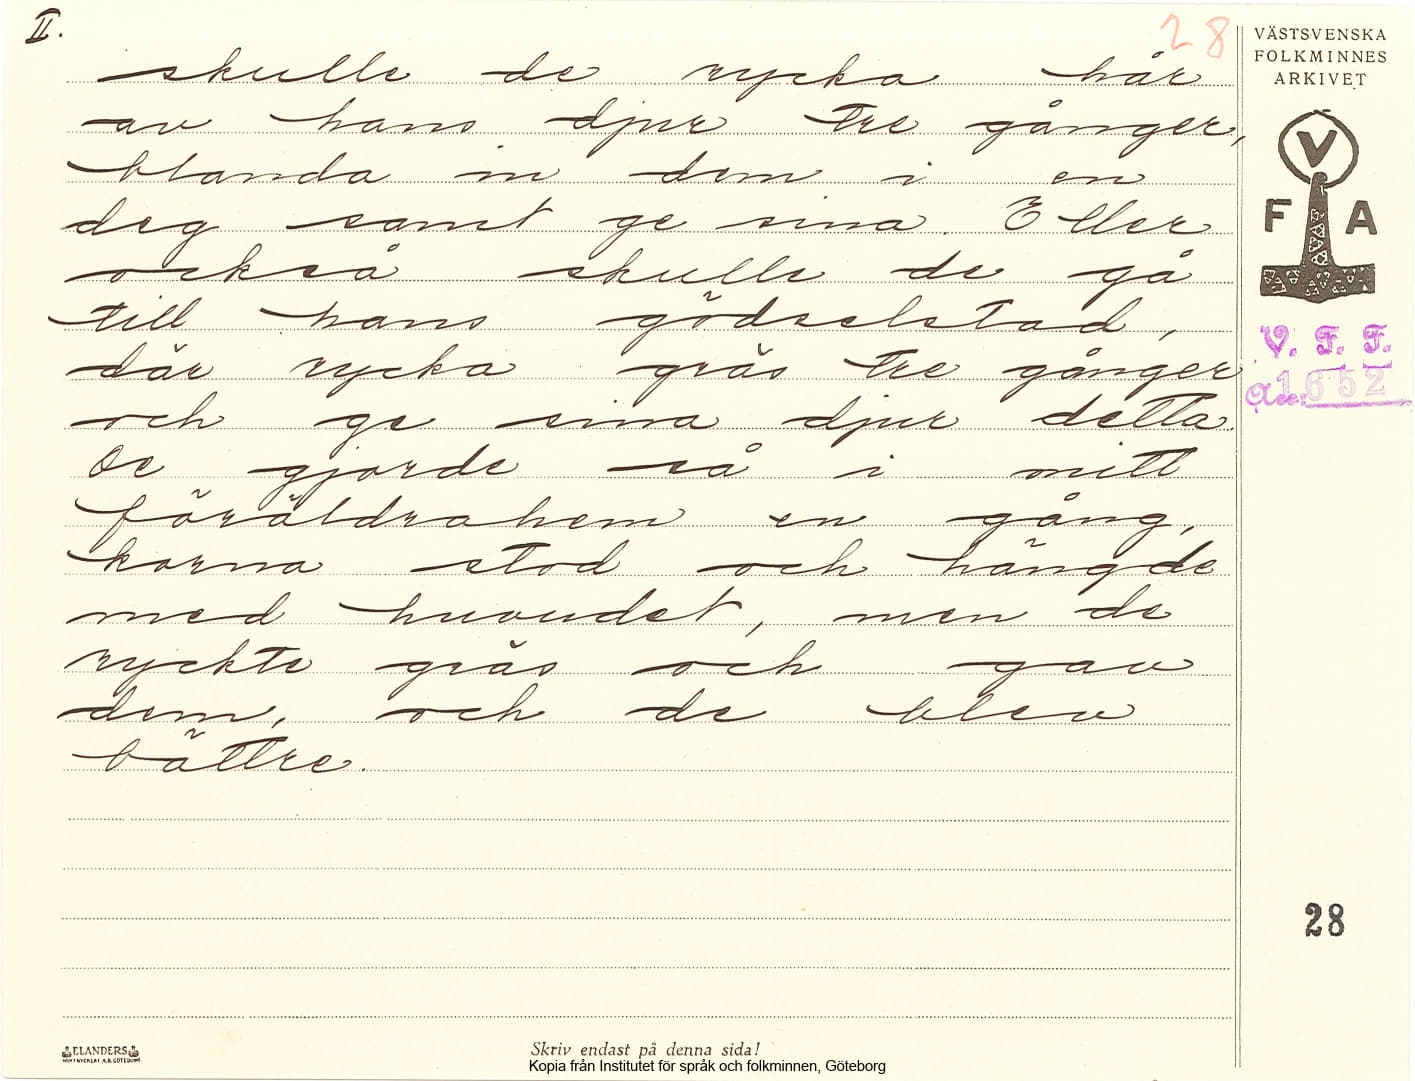 II.
28
skulle de rycka hår
av hans djur tre gånger,
blanda in dem i en
deg samt ge sina. Eller
också skulle de gå
till hans gödselstad,
där rycka gräs tre gånger
och ge sina djur detta.
De gjorde så i mitt
föräldrahem en gång,
korna stod och hängde
med huvudet, men de
ryckte gräs och gav
dem, och de blev
bättre.
VÄSTSVENSKA
FOLKMINNES
ARKIVET
V
F A
V. F. F.
Acc: 1652
28
ELANDERS
Skriv endast på denna sida!
Kopia från Institutet för språk och folkminnen, Göteborg